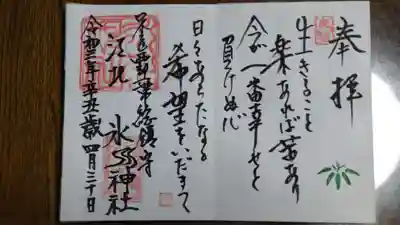 奉拝
生きること
楽あれば苦あり
今が一番幸せと
負けぬ心
日々あらたなる
希望をいだきて
江北 氷川神社
令和三年辛丑歳四月三十日